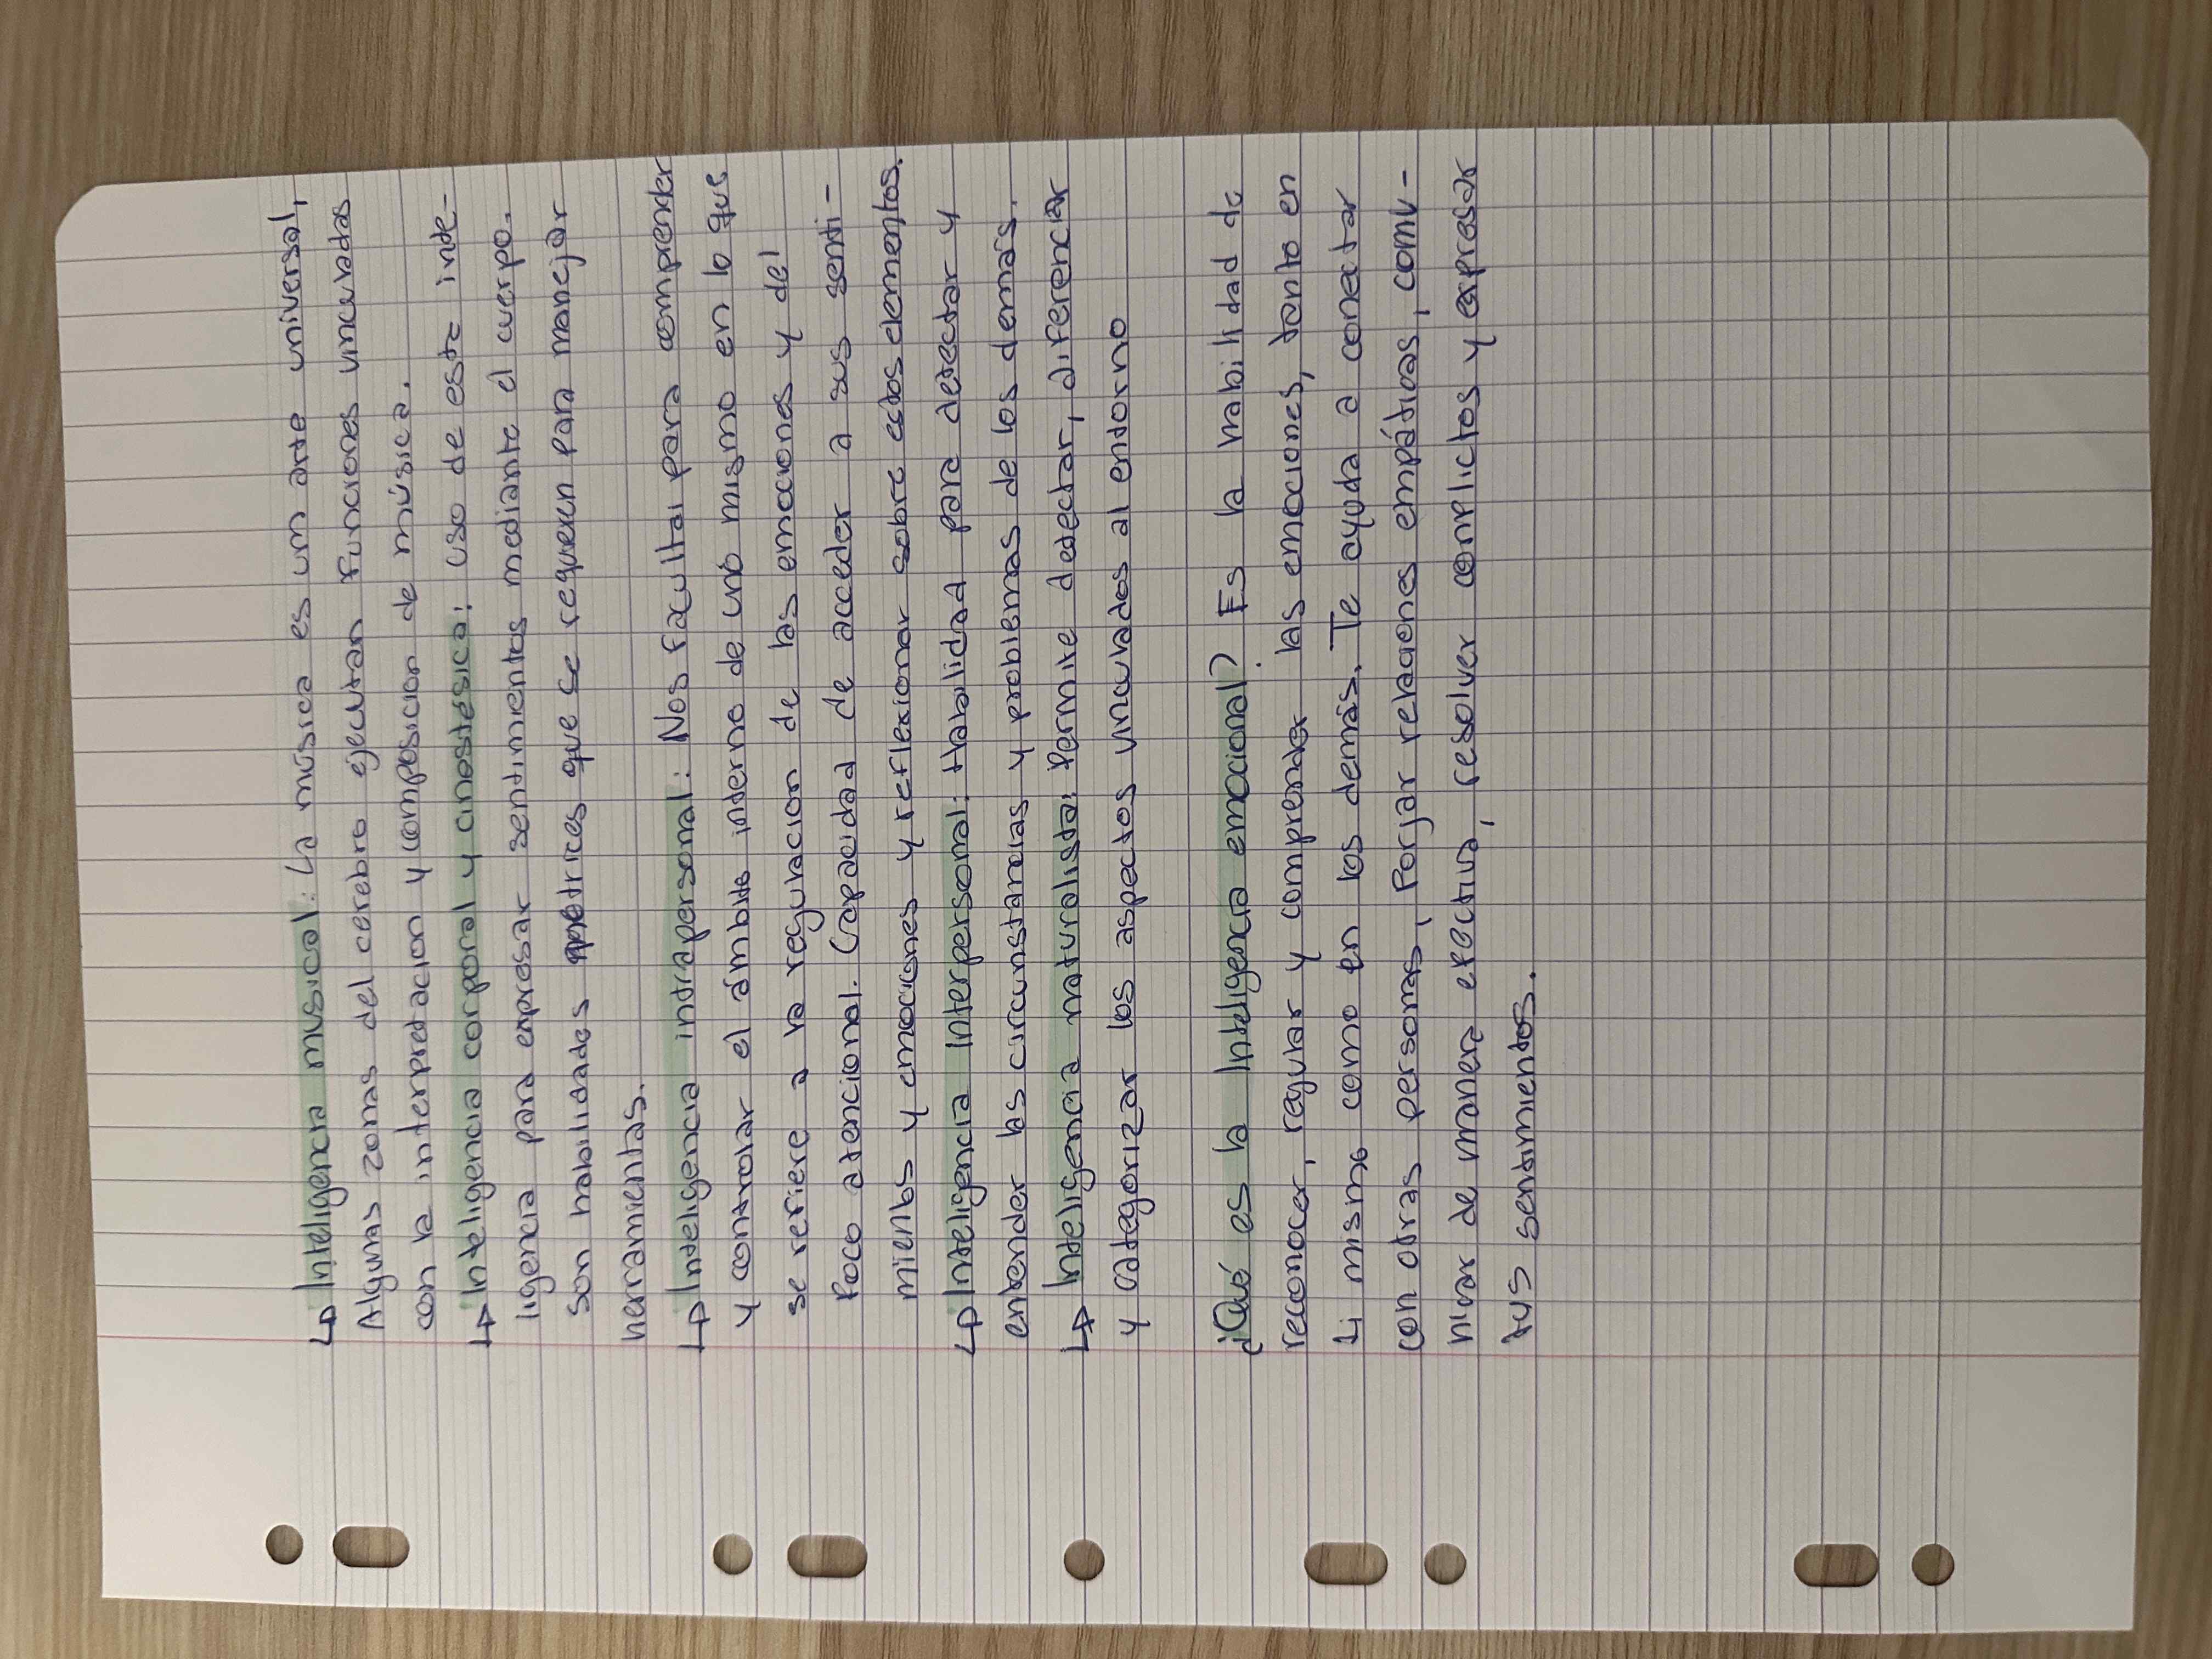 ↳ Inteligencia musical: La música es um arte universal,
Algunas zonas del cerebro ejecutan funciones vinculadas
con la interpretacion y composicion de música.
↳ Inteligencia corporal y cinestésica: uso de este inte-
ligencia para expresar sentimientos mediante el cuerpo.
son habilidades motrices que se requieren para manejar
herramientas.
↳ Inteligencia intrapersonal: Nos facultar para comprender
y controlar el ámbito interno de uno mismo en lo que
se refiere a la regulacion de las emociones y del
Foco atencional. Capacidad de acceder a sus senti-
mientos y emociones y reflexionar sobre estos elementos.
↳ Inteligencia Interpersonal: Habilidad para detectar y
entender las circunstancias y problemas de los demás.
↳ Inteligencia naturalista: Permite detectar, diferenciar
y categorizar los aspectos vinculados al entorno
¿Qué es la Inteligencia emocional? Es la habilidad de
reconocer, regular y comprender las emociones, tanto en
ti mismo como en los demás. Te ayuda a conectar
con otras personas, Forjar relaciones empáticas, comu-
nicar de manera efectiva, resolver complictos y expresar
tus sentimientos.